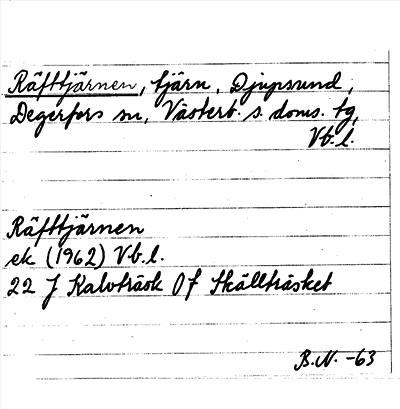 Räfttjärnen, tjärn, Djupsund,
Degerfors sn, Västerb. s. doms. tg,
Vb.l.
Räfttjärnen
ek (1962) Vb.l.
22 J Kalvträsk 0f Skällträsket
B.N. -63